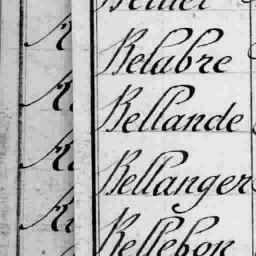 Belabre
Bellande
Bellanger
Bellebon